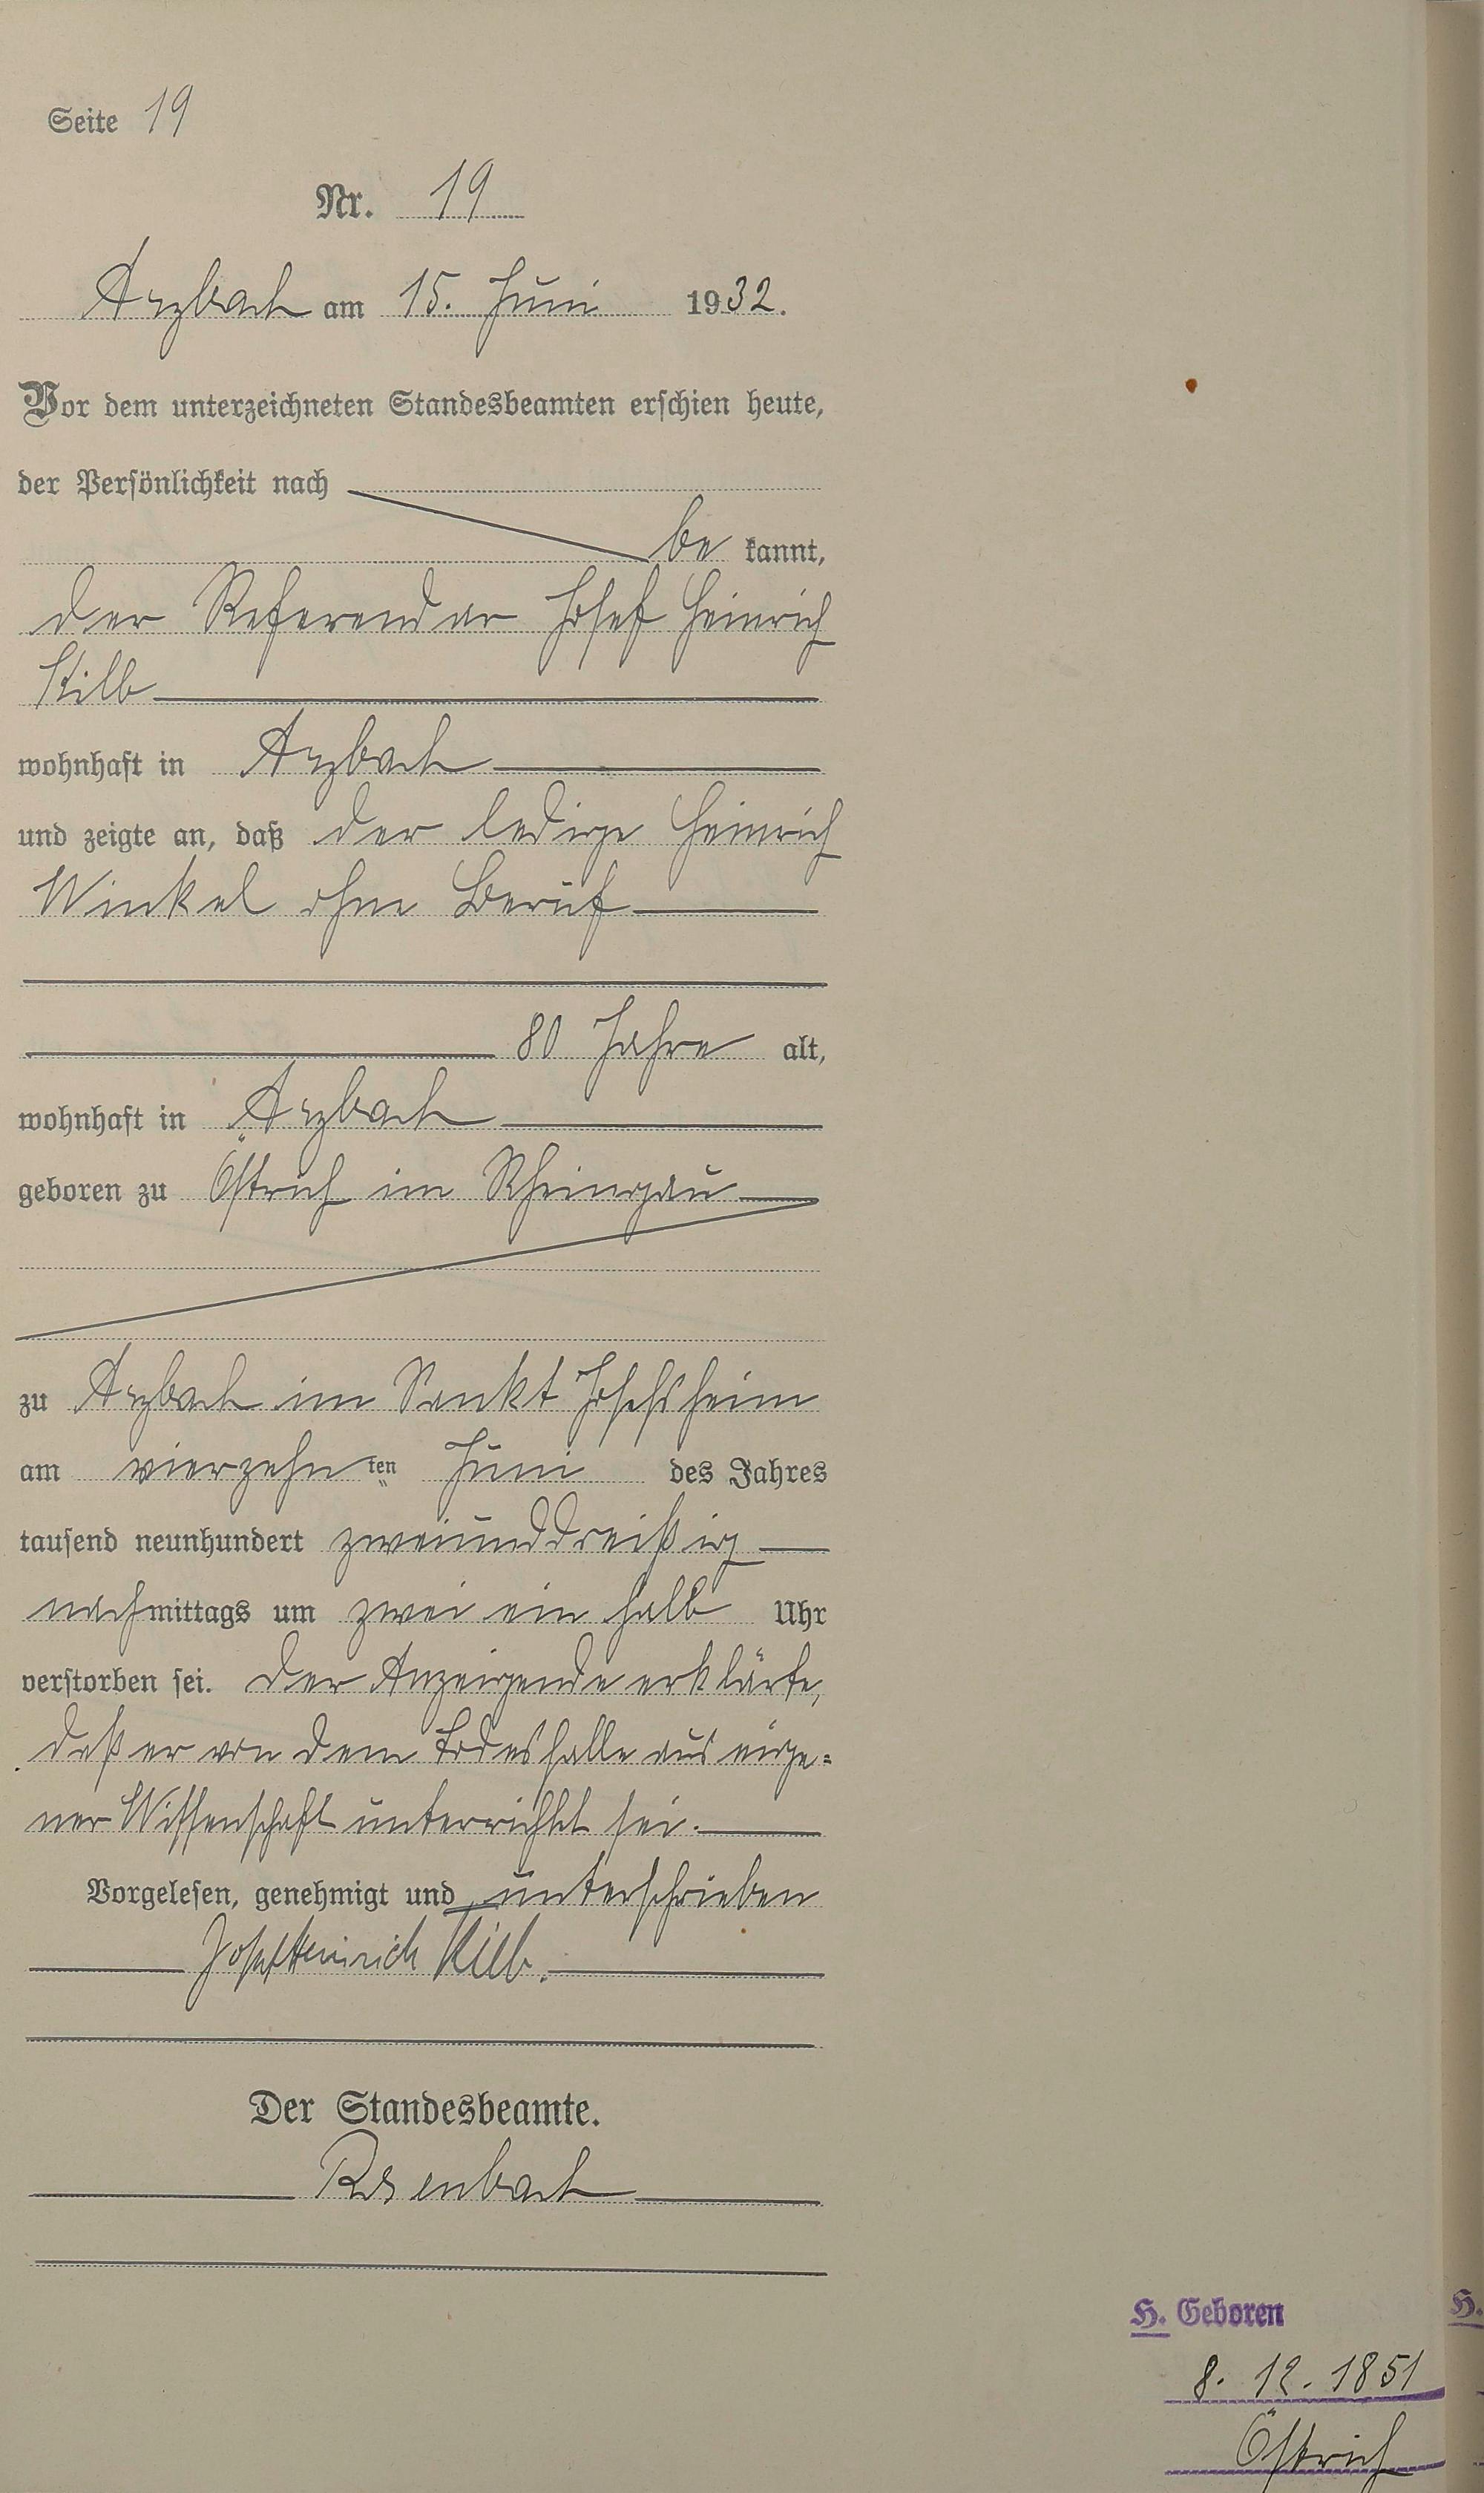 Seite 19
Nr. 19
Arzbach am 15. Juni 1932.
Vor dem unterzeichneten Standesbeamten erschien heute,
der Persönlichkeit nach
be kannt,
der Referendar Josef Heinrich
Kilb
wohnhaft in Arzbach
und zeigte an, daß der ledige Heinrich
Winkel ohne Beruf
80 Jahre alt,
wohnhaft in Arzbach
geboren zu Östrich im Rheingau
zu Arzbach im Sankt Josefsheim
am vierzehn ten Juni des Jahres
tausend neunhundert zweiunddreißig
nachmittags um zwei ein halb Uhr
verstorben sei. Der Anzeigende erklärte,
daß er von dem Todesfalle aus eige=
ner Wissenschaft unterrichtet sei.
Vorgelesen, genehmigt und unterschrieben
Josef Heinrich Kilb.
Der Standesbeamte.
Rosenbach
H. Geboren
8. 12. 1851
Östrich
H.